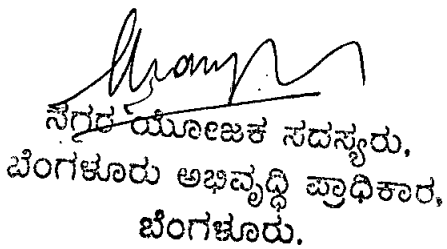 ನಗರ ಯೋಜಕ ಸದಸ್ಯರು,
ಬೆಂಗಳೂರು ಅಭಿವೃದ್ಧಿ ಪ್ರಾಧಿಕಾರ,
ಬೆಂಗಳೂರು.